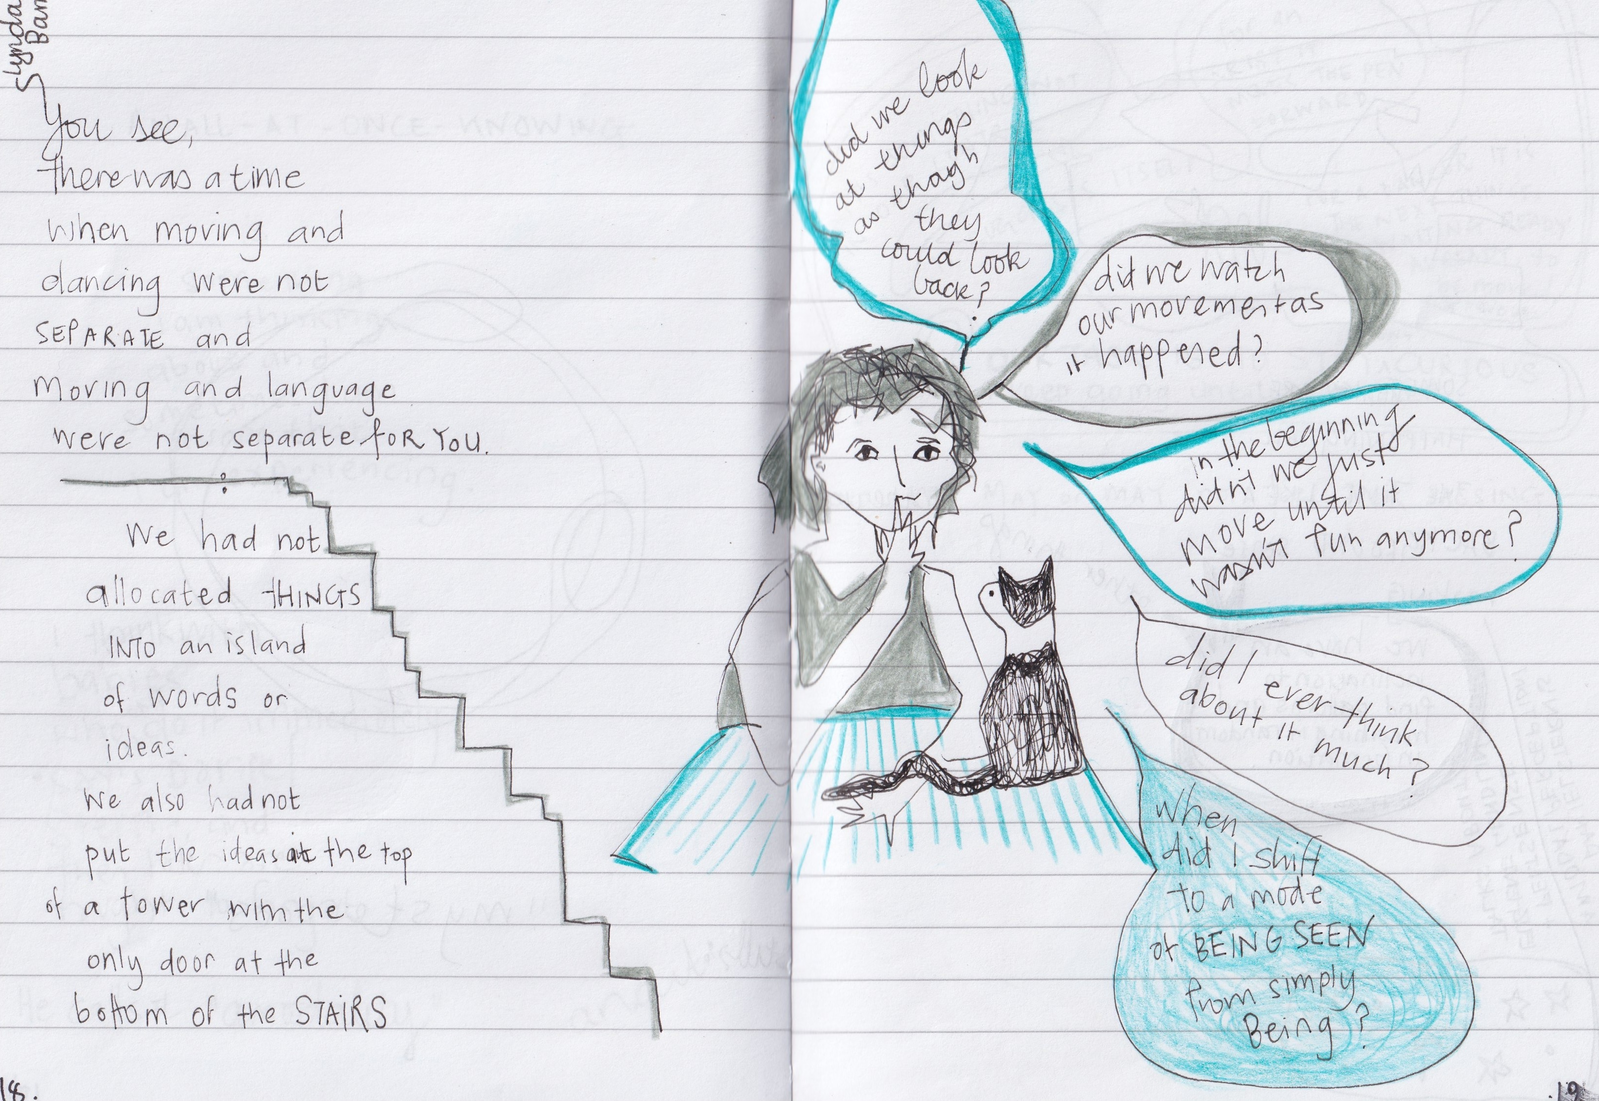 Lynda
You see,
there was a time
when moving and
dancing were not
SEPARATE and
moving and language
were not separate FOR YOU.
We had not
allocated THINGS
INTO an island
of words or
ideas.
We also had not
put the ideas at the top
of a tower with the
only door at the
bottom of the STAIRS
18.
did we look
at things
as thagh
they
could look
back?
did we watch
our movement as
it happened?
in the beginning
didn't we just
move until it
wasn't fun anymore?
did I ever think
about it much?
when
did I shift
to a mode
of BEING SEEN
from simply
Being?
.19